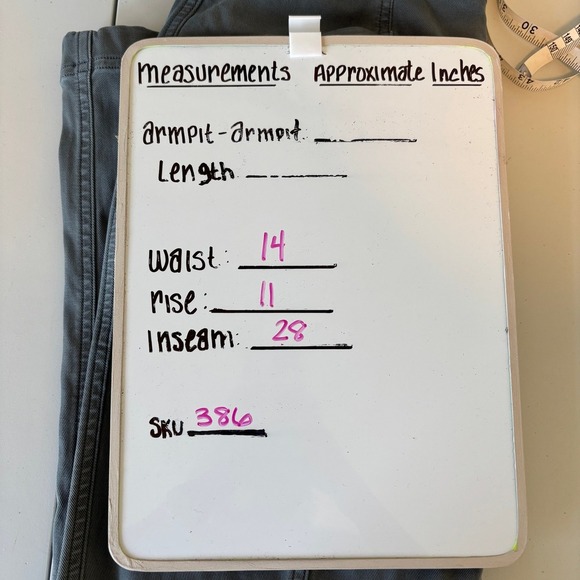 measurements Approximate Inches
armpit-armpit
Length
waist: 14
rise: 11
Inseam: 28
SKU 386